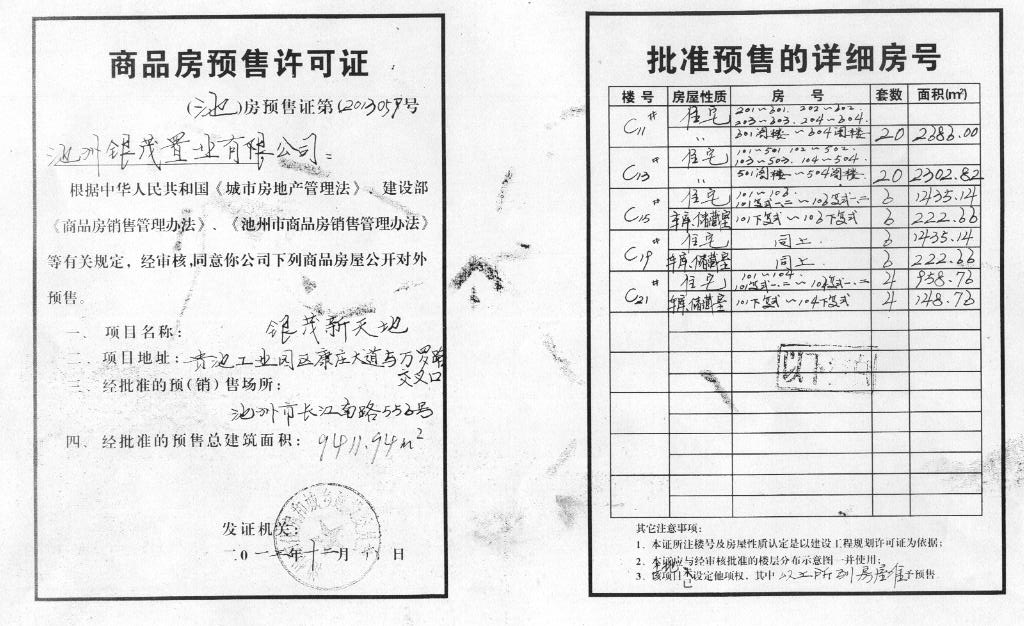 商品房预售许可证
(池)房预售证第(2013059号
池州银茂置业有限公司:
根据中华人民共和国《城市房地产管理法》、建设部
《商品房销售管理办法》、《池州市商品房销售管理办法》
等有关规定，经审核，同意你公司下列商品房屋公开对外
预售。
一、项目名称: 银茂新天地
二、项目地址: 贵池工业园区康庄大道与万罗路
交叉口
三、经批准的预(销)售场所:
池州市长江南路556号
四、经批准的预售总建筑面积: 9411.94m²
发证机关:
二0一 年十二月 日
批准预售的详细房号
楼号 房屋性质 房号 套数 面积(m²)
C11# 住宅 201~601. 202~602.
203~603. 204~604.
〃 601阁楼~604阁楼 20 2386.00
C13# 住宅 101~501 102~502.
103~503. 104~504.
〃 501阁楼~504阁楼 20 2302.82
C15# 住宅 101~106. 6 1435.14
101复式一.二~106复式一.二
车库.储藏室 101下复式~106下复式 6 222.66
C19# 住宅 同上. 6 1435.14
车库.储藏室 同上. 6 222.66
C21# 住宅 101~104. 4 958.76
101复式一.二~104复式一.二
车库.储藏室 101下复式~104下复式 4 148.76
其它注意事项:
1．本证所注楼号及房屋性质认定是以建设工程规划许可证为依据;
2．本证应与经审核批准的楼层分布示意图一并使用;
3．该项目 设定他项权，其中 以上所列房屋准予预售